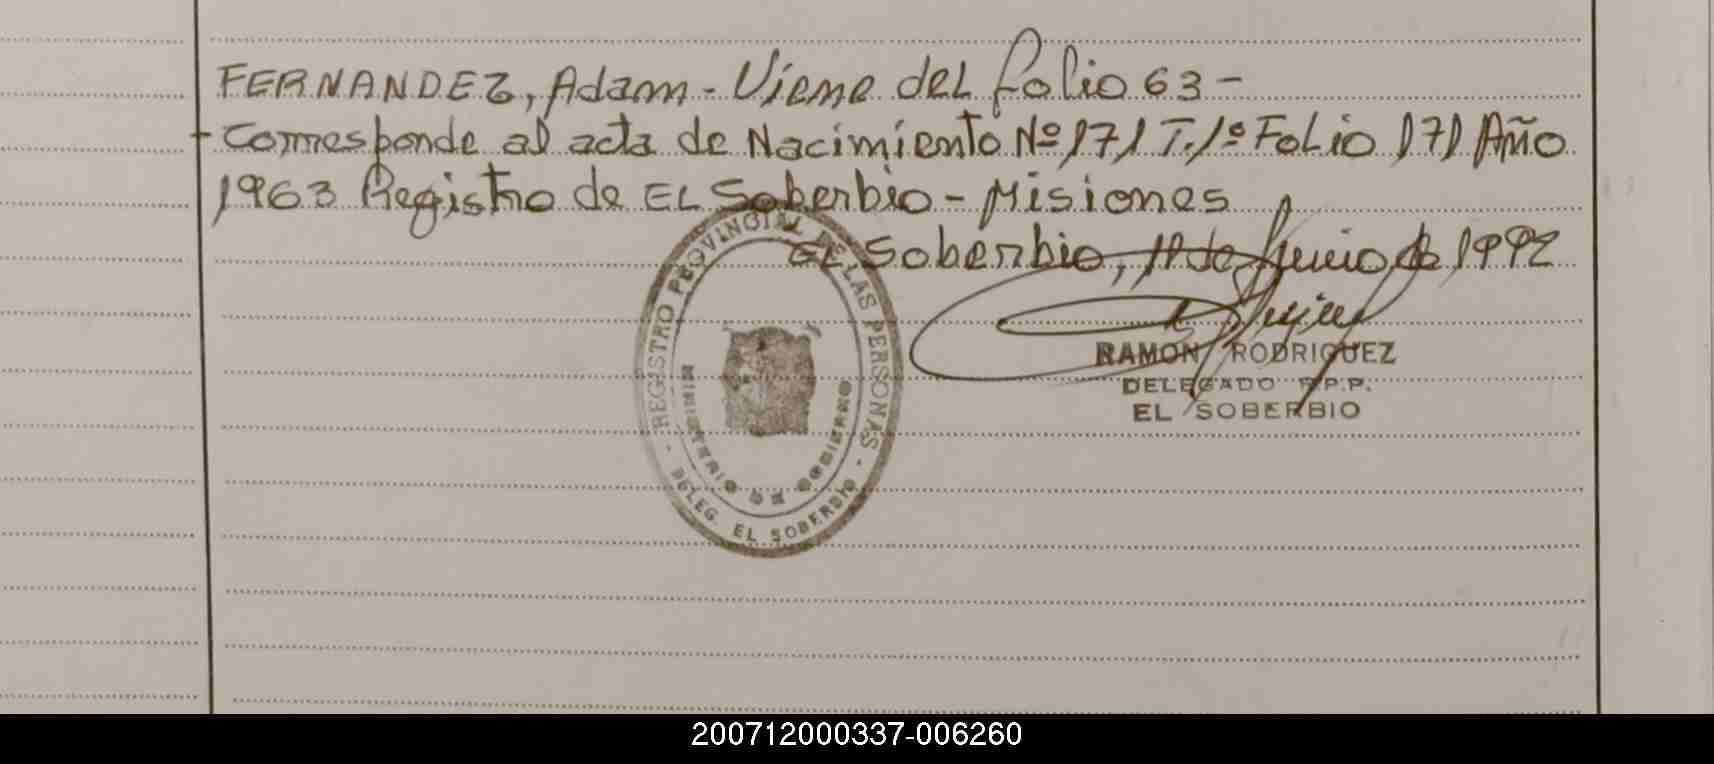 FERNANDEZ, Adam - Viene del folio 63 -
- Corresponde al acta de Nacimiento Nº 171 T. 1º Folio 171 Año
1963 Registro de EL Soberbio - Misiones
EL Soberbio, 11 de Junio de 1992
REGISTRO PROVINCIAL DE LAS PERSONAS
MINISTERIO DE GOBIERNO
- DELEG. EL SOBERBIO -
RAMON RODRIGUEZ
DELEGADO R.P.P.
EL SOBERBIO
200712000337-006260